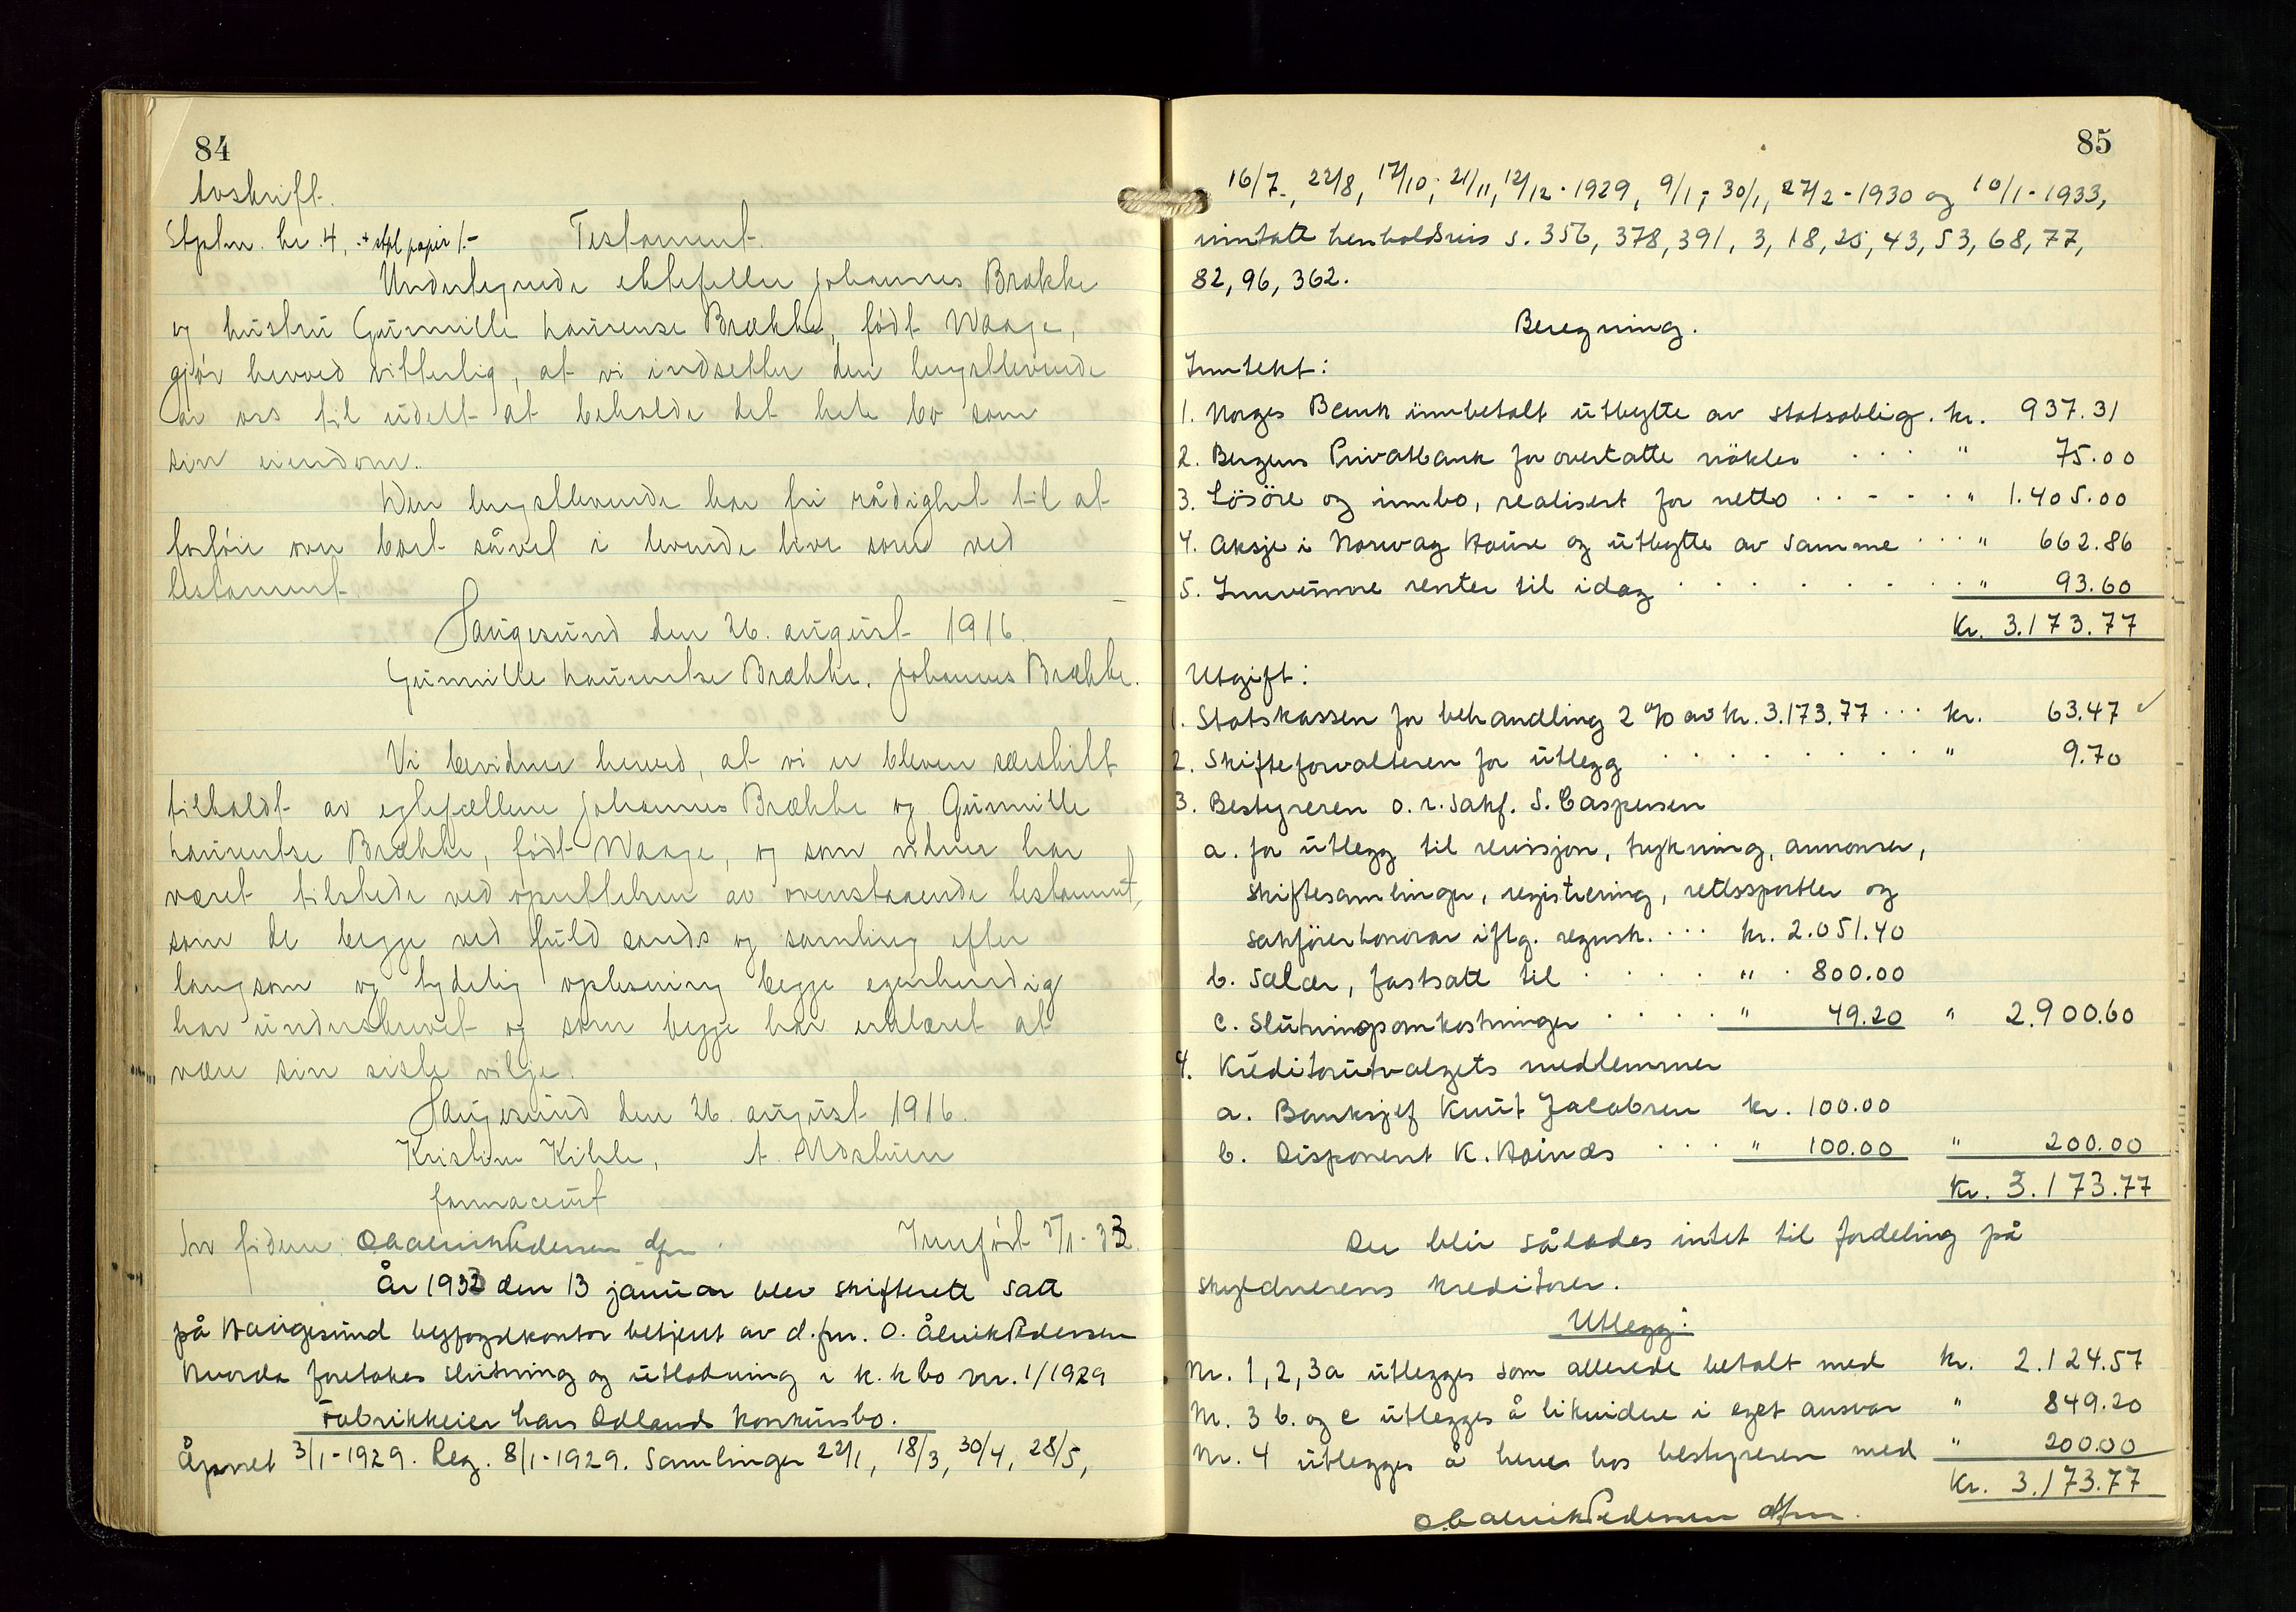 84
Avskrift.
Stplm. kr. 4, + stpl papir 1.- Testament.
Undertegnede ektefeller Johannes Brække
og hustru Gunnille Laurense Brække, født Waage,
gjør herved vitterlig, at vi indsetter den lengstlevende
av oss til udelt at beholde det hele bo som
sin eiendom.
Den lengstlevende har fri rådighet til at
forføie over boet såvel i levende live som ved
testament.
Haugesund den 26. august 1916.
Gunnille Laurentse Brække. Johannes Brække.
Vi bevidner herved, at vi er bleven særskilt
tilkaldt av egtefællene Johannes Brække og Gunnille
Laurentse Brække, født Waage, og som vidner har
været tilstede ved oprettelsen av ovenstaaende testament,
som de begge ved fuld sands og samling efter
langsom og tydelig oplesning begge egenhendig
har underskrevet og som begge har erklæret at
være sin siste vilje.
Haugesund den 26. august 1916.
Kristian Kihle, A.
farmaceut
In fidem: O. Ålvik Pedersen dfm. Innført 5/1-33.
År 1933 den 13 januar blev skifterett satt
på Haugesund byfogdkontor betjent av d.fm. O. Ålvik Pedersen
Hvorda foretokes slutning og utlodning i k.k bo nr. 1/1929
Fabrikkeier Lars Ødlands konkursbo.
Åpnet 3/1-1929. Reg. 8/1-1929. Samlinger 22/1, 18/3, 30/4, 28/5,
85
16/7-, 22/8, 17/10, 21/11, 12/12-1929, 9/1, 30/1, 27/2-1930 og 10/1-1933,
inntatt henholdsvis s. 356, 378, 391, 3, 18, 25, 43, 53, 68, 77,
82, 96, 362.
Beregning.
Inntekt:
1. Norges Bank innbetalt utbytte av statsoblig. kr. 937.31
2. Bergens Privatbank for overtatte nökler . . . " 75.00
3. Lösöre og innbo, realisert for netto . . - . . " 1.405.00
4. Aksje i Norvag Haus og utbytte av samme . . . " 662.86
5. Innvunne renter til idag . . . . . . . . " 93.60
Kr. 3.173.77
Utgift:
1. Statskassen for behandling 2 % av kr. 3.173.77 . . . kr. 63.47
2. Skifteforvalteren for utlegg . . . . . . . . " 9.70
3. Bestyreren o.r.sakf. S. Caspersen
a. for utlegg til revisjon, trykning, annonser,
skiftesamlinger, registrering, rettssportler og
sakförerhonorar iflg. regnsk. . . . kr. 2.051.40
b. Salær, fastsatt til . . . . " . 800.00
c. Slutningsomkostninger . . . . " 49.20 " 2.900.60
4. Kreditorutvalgets medlemmer
a. Banksjef Knut Jacobsen kr. 100.00
b. Disponent K. Hoinds . . . " 100.00 " 200.00
Kr. 3.173.77
Der blir således intet til fordeling på
skyldnerens kreditorer.
Utlegg:
Nr. 1, 2, 3a utlegges som allerede betalt med kr. 2.124.57
Nr. 3 b. og c utlegges å likvidere i eget ansvar " 849.20
Nr. 4 utlegges å heves hos bestyreren med " 200.00
Kr. 3.173.77
O. Ålvik Pedersen dfm.